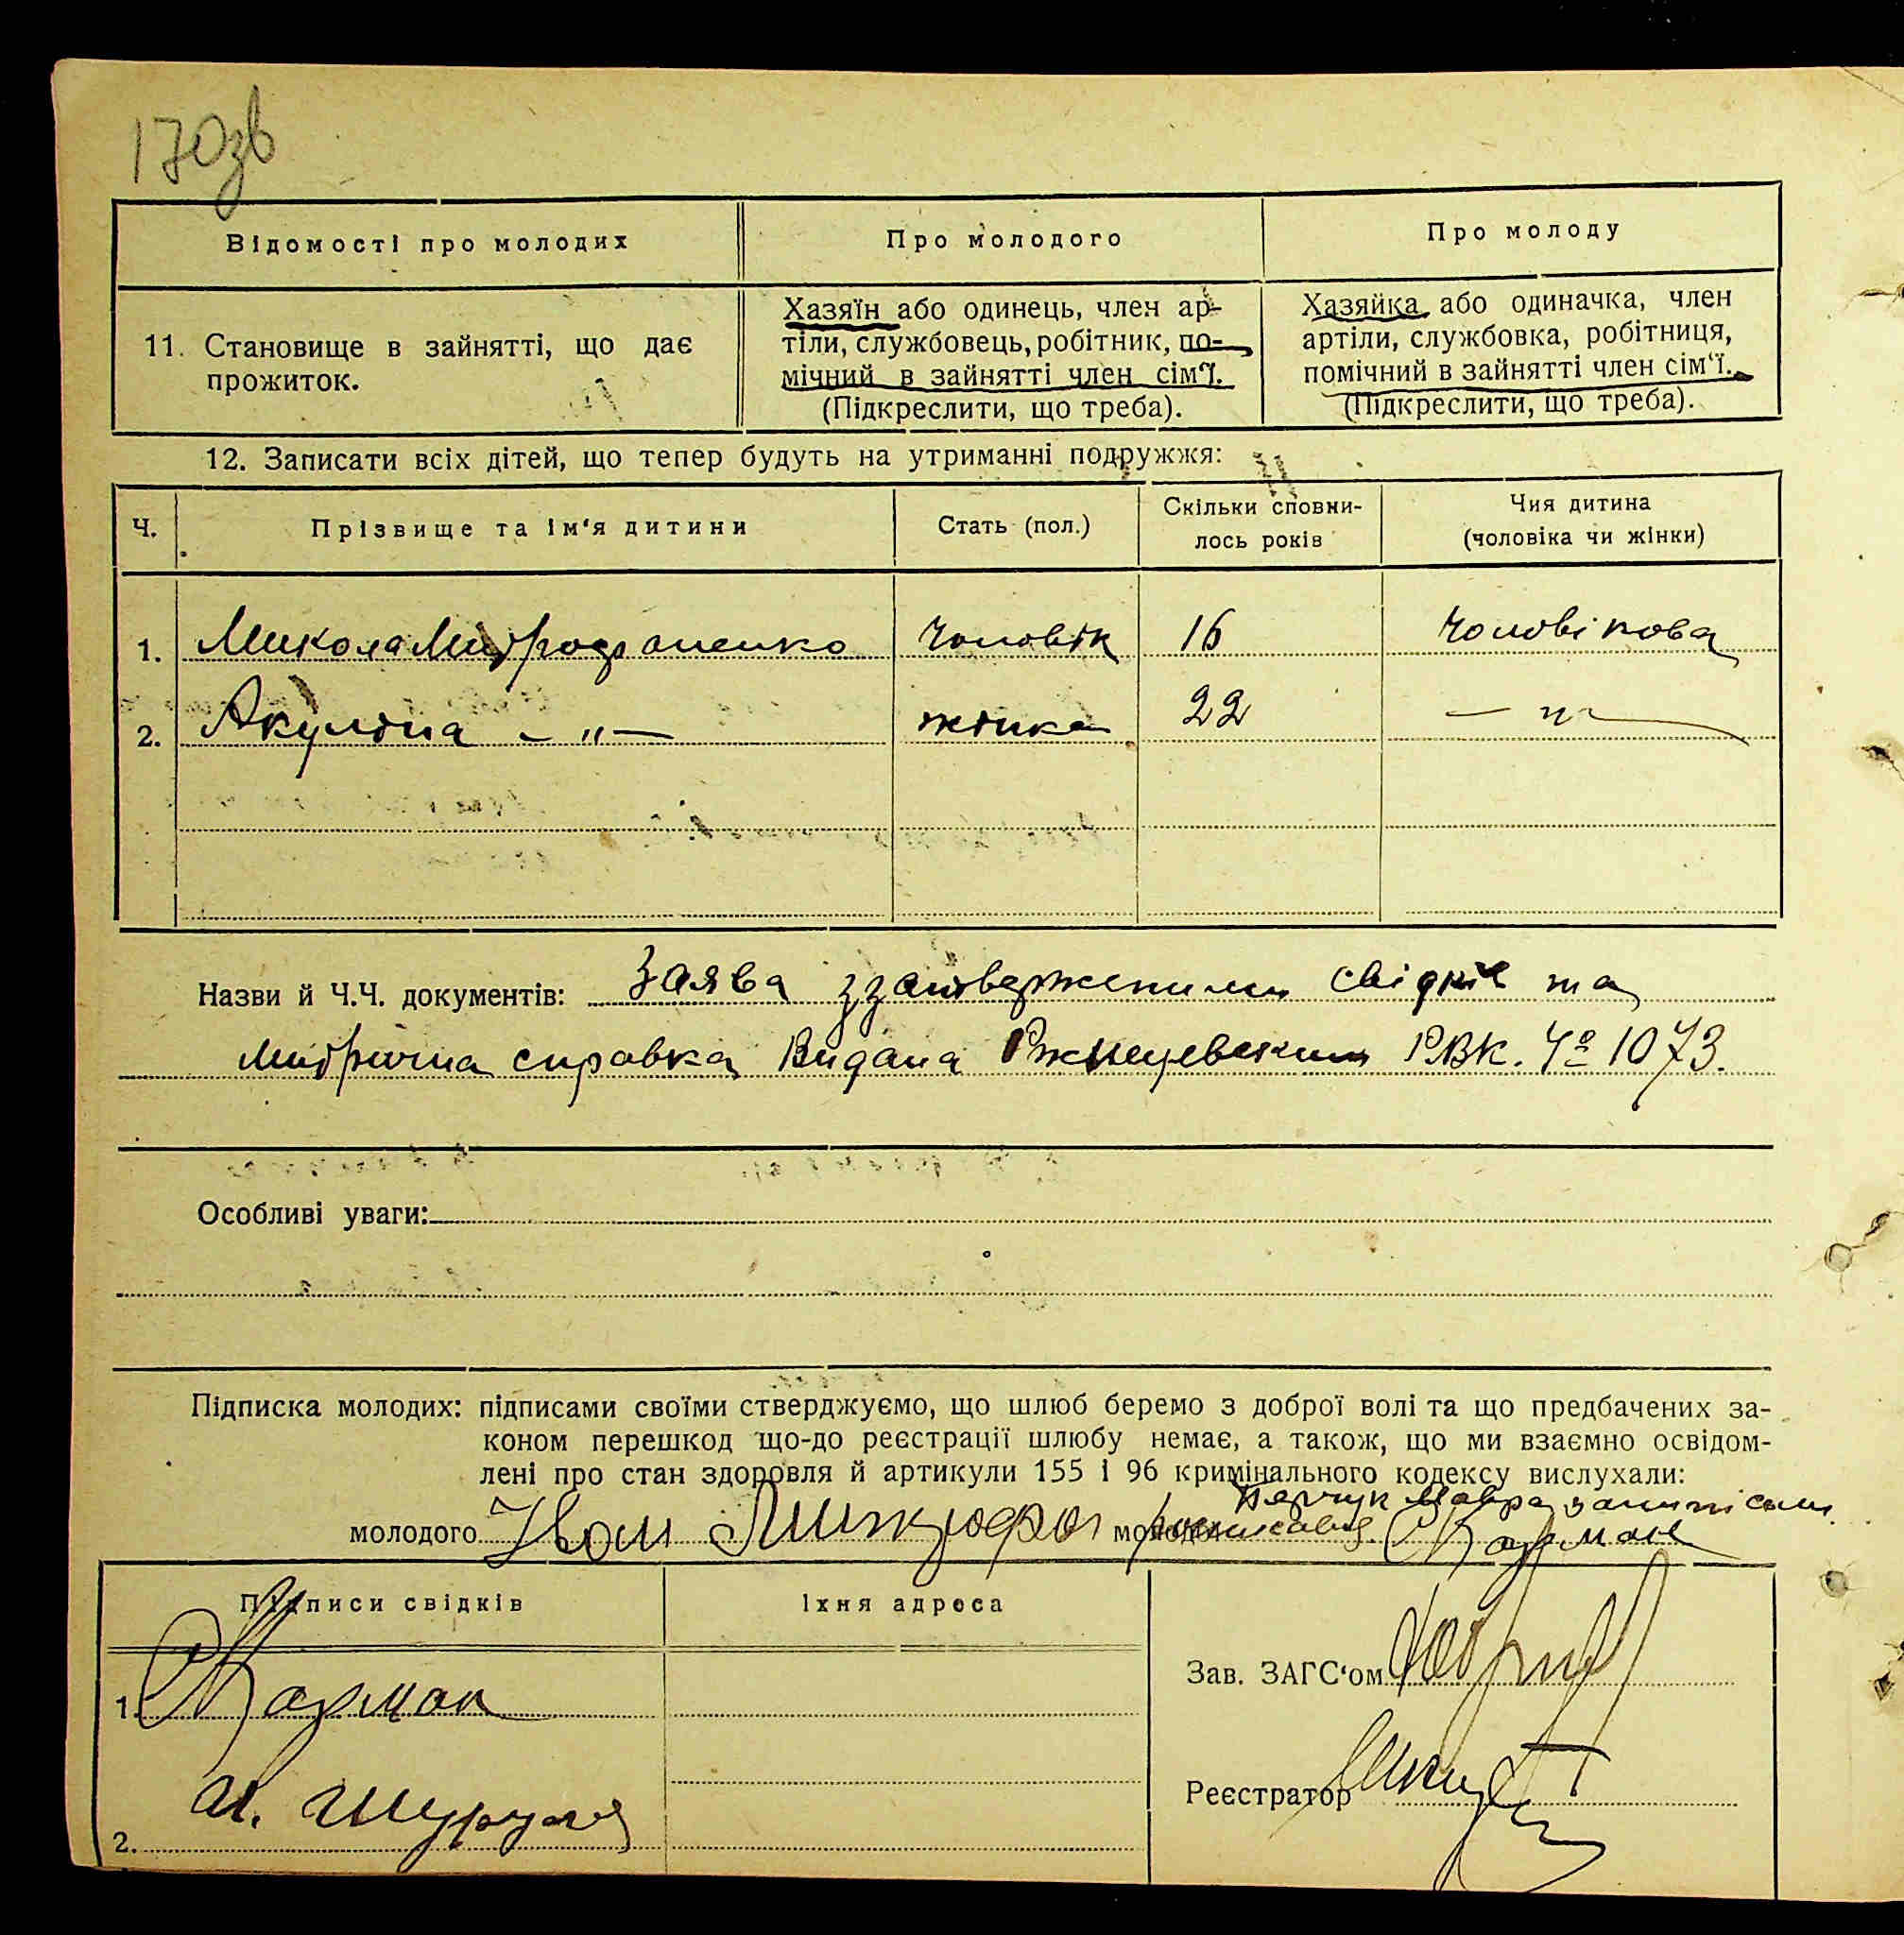 170зв
Відомості про молодих
Про молодого
Про молоду
11. Становище в зайнятті, що дає
прожиток.
Хазяїн або одинець, член ар-
тіли, службовець, робітник, по-
мічний в зайнятті член сім'ї.
(Підкреслити, що треба).
Хазяйка або одиначка, член
артіли, службовка, робітниця,
помічний в зайнятті член сім'ї.
(Підкреслити, що треба).
12. Записати всіх дітей, що тепер будуть на утриманні подружжя:
Ч.
Прізвище та ім'я дитини
Стать (пол.)
Скільки сповни-
лось років
Чия дитина
(чоловіка чи жінки)
1. Микола Митрофаненко чоловік 16 чоловікова
2. Акуліна - „ - жінка 22 - „ -
Назви й Ч.Ч. документів: Заява з затвердженими свідків та
метрична справка видана Ржищевским РВК. Ч° 1073.
Особливі уваги:
Підписка молодих: підписами своїми стверджуємо, що шлюб беремо з доброї волі та що предбачених за-
коном перешкод що-до реєстрації шлюбу немає, а також, що ми взаємно освідом-
лені про стан здоровля й артикули 155 і 96 кримінального кодексу вислухали:
молодого Іван молодої
Підписи свідків
Їхня адреса
1. Карман
2.
Зав. ЗАГС'ом
Реєстратор